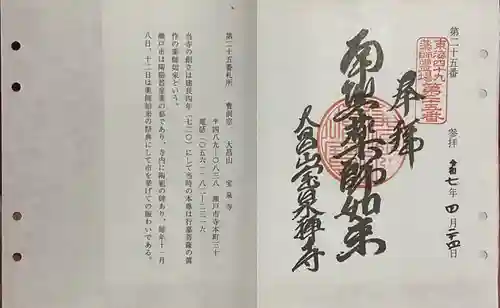 第二十五番
東海四十九
薬師霊場第二十五番
参拝 令和七年四月二十四日
奉拝
南無薬師如来
大昌山宝泉禅寺
第二十五番札所 曹洞宗 大昌山 宝泉寺
〒四八九-〇八三八 瀬戸市寺本町三十
電話(〇五六一-八二-二三一六
当寺の創立は建長四年(一二五〇)にして当時の本尊は行基菩薩の真
作の薬師如来という。
瀬戸市は陶磁器産業の都であり、寺内に陶祖の碑あり、毎年十一月
八日、十二日は薬師如来の祭典にして市を挙げての賑わいである。